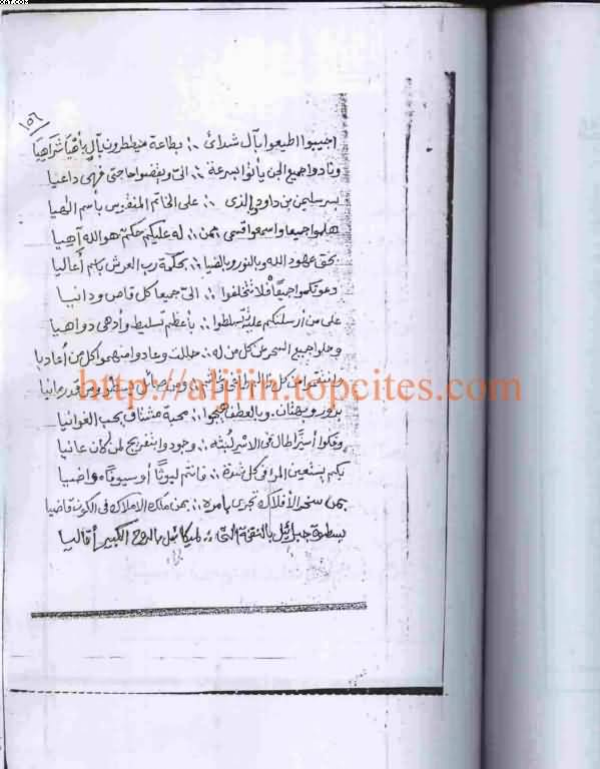 ١٥٦
اجيبوا اطيعوا يآل شدائ ؞ بطاعة منططرون يآل أهيا شراهيا
ونادوا جميع الجن يأتوا بسرعة ؞ الىّ ويقضوا حاجتى فهى داعيا
بسر سليمن بن داود والذى ؞ على الخاتم المنقوس باسم الهيا
هلموا جميعا واسمعوا قسمى بمن ؞ له عليكم حكم هو الله آهيا
بحق عهود الله وبالنور وبالضيا ؞ بحكمة رب العرش باسم أعاليا
دعوتكموا جميعا فلا تتخلفوا ؞ الىّ جميعا كل قاص ودانيا
على من أرسلنكم عليه تسلطوا ؞ بأعظم تسليط وأدهى دواهيا
وحلوا جميع السحر من كل من له ؞ حللت وعادوا منهموا كل من أعاديا
كل ظالم
بزور وبهتان وبالعطف هيجوا ؞ محبة مشتاق يحب الغوانيا
وفكوا أسيرا طال فى الاسر لبثه ؞ وجودوا بتفريج لمن كان عانيا
بكم يستعين المرا فى كل شدة ؞ فانتم ليوثا أو سيوفا مواضيا
بمن سخر الأفلاك تجرى بامره ؞ بمن ملك الاملاك فى الكون قاضيا
بسطوة جبرائيل ؞ ميكائل بالروح الكبير أقاليا
http://aljiin.topcites.com